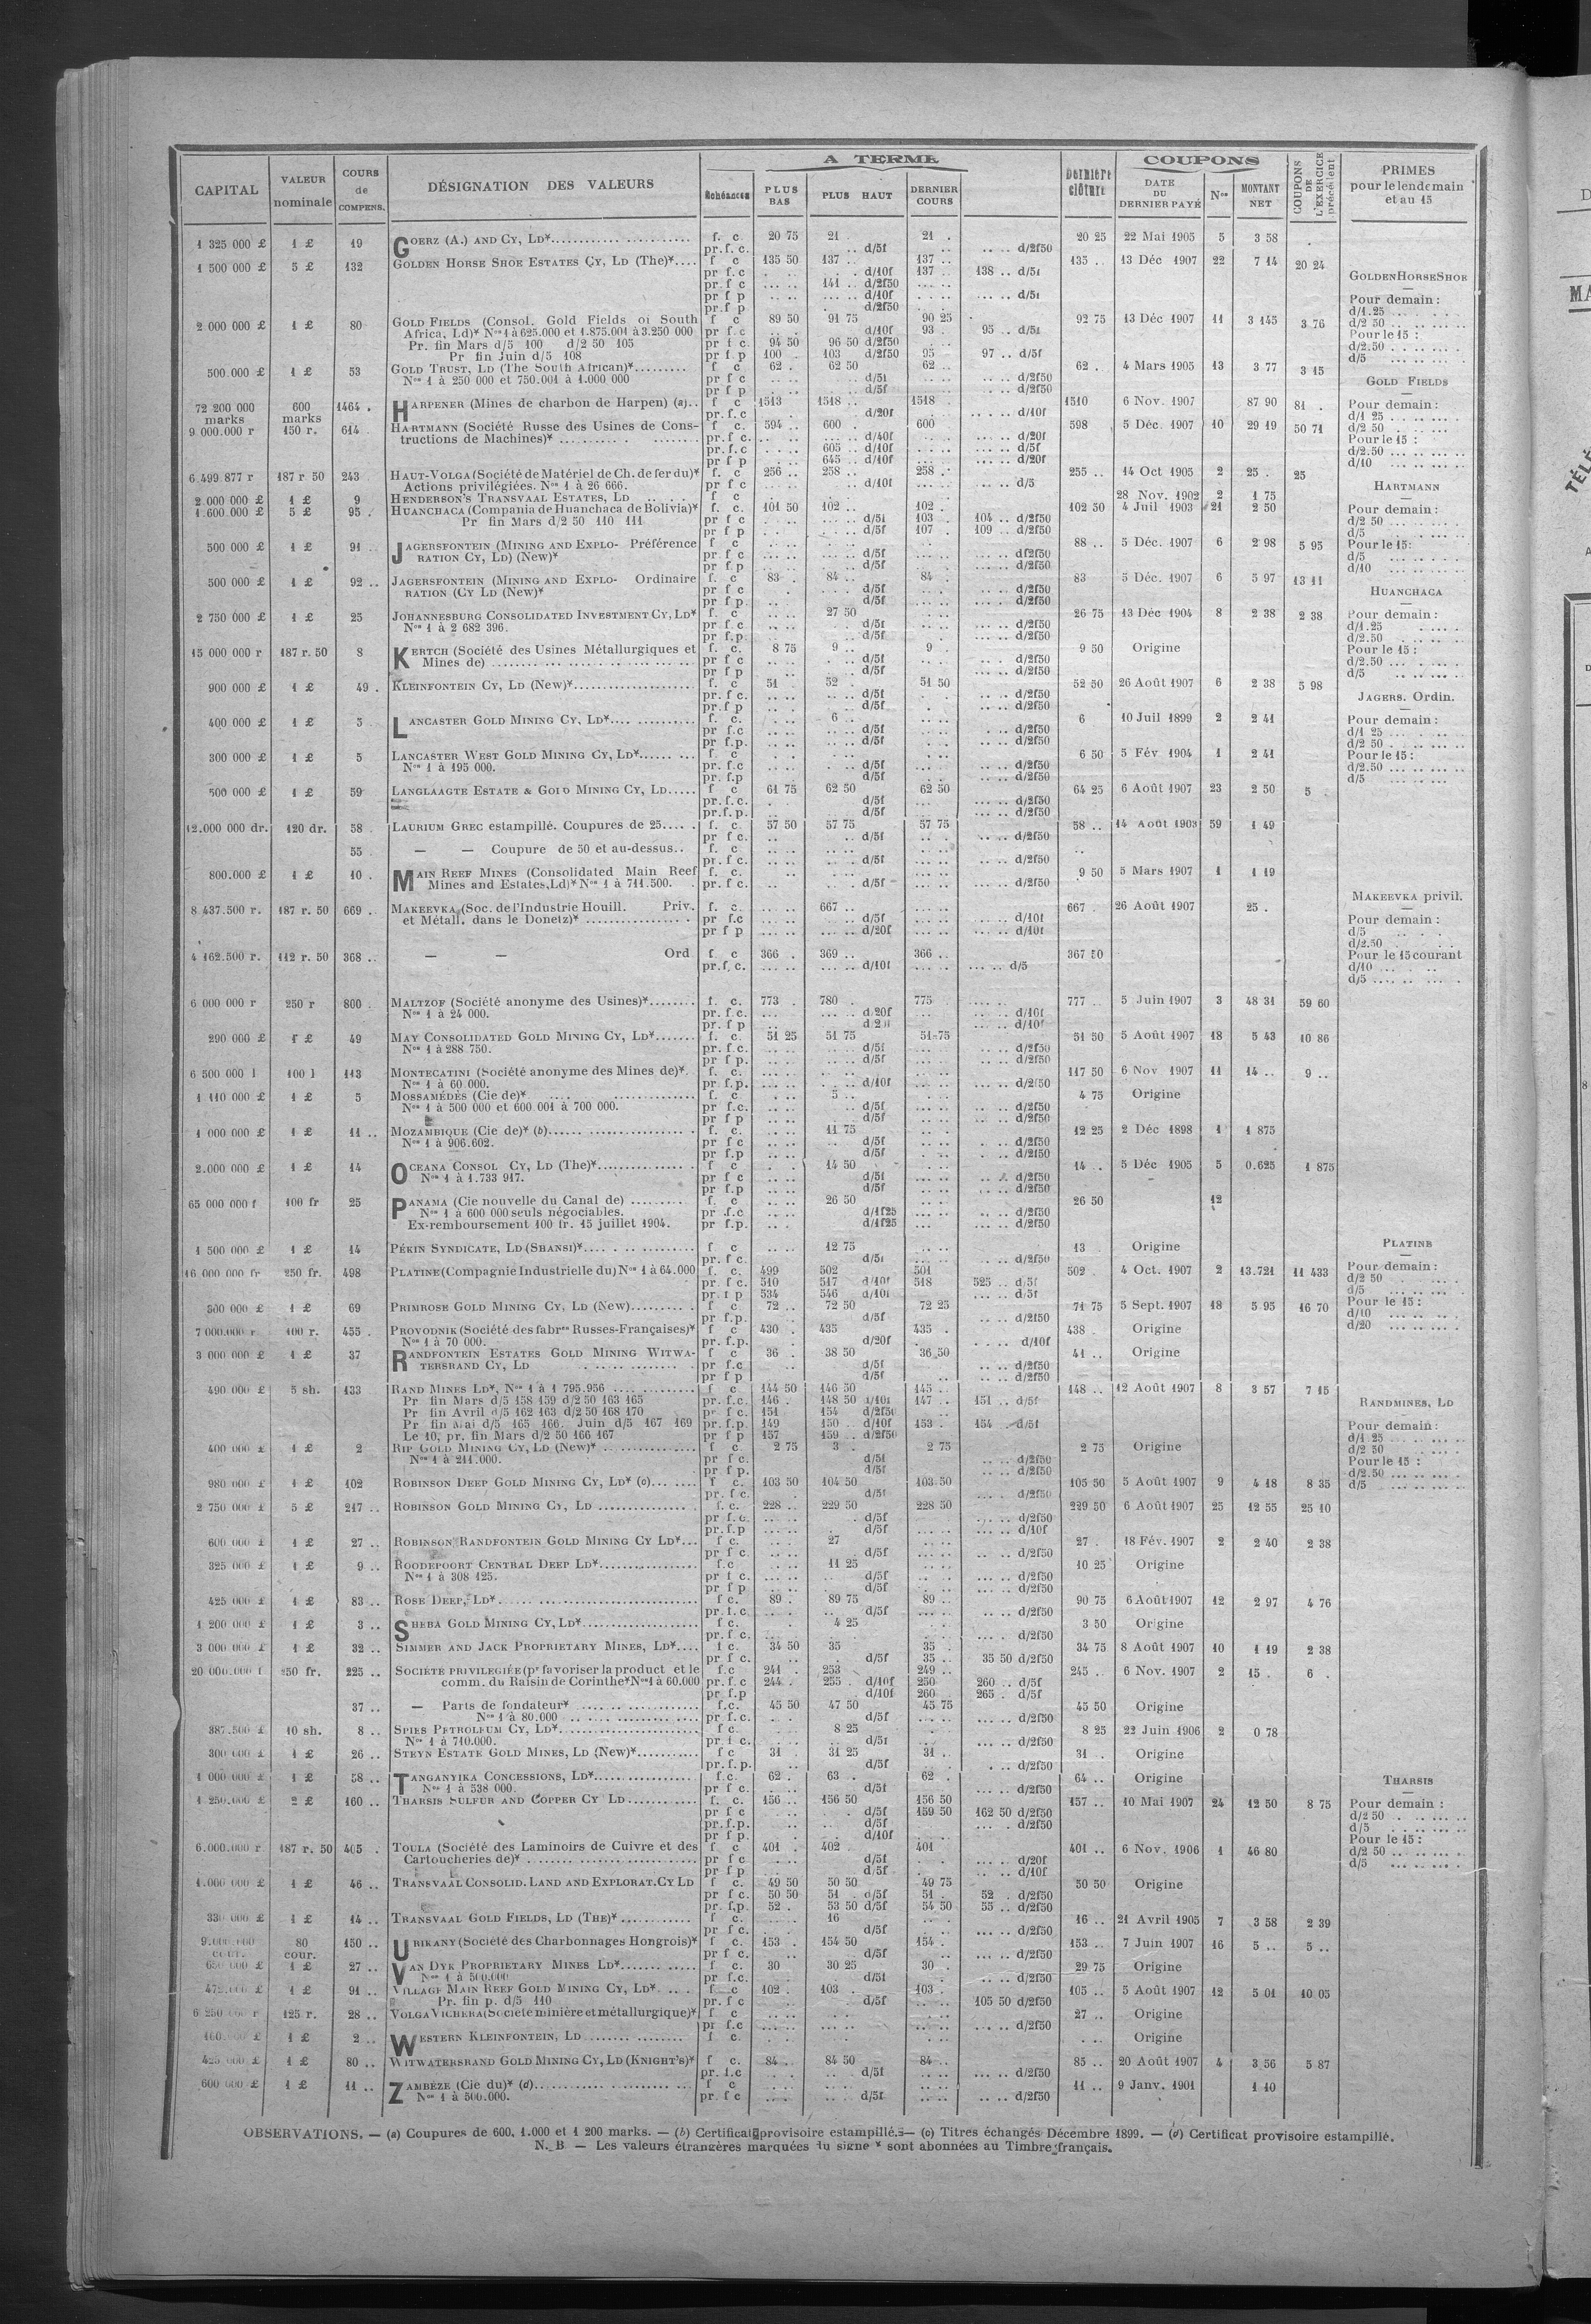 A TERME
COUPONS
CAPITAL | VALEUR nominale | COURS de COMPENS. | DÉSIGNATION DES VALEURS | Échéances | PLUS BAS | PLUS HAUT | DERNIER COURS | Dernière clôture | DATE DU DERNIER PAYÉ | Nos | MONTANT NET | COUPONS DE L'EXERCICE précédent | PRIMES pour le lendemain et au 15
1 325 000 £ | 1 £ | 19 | GOERZ (A.) AND CY, LD* | f. c. | 20 75 | 21 | 21 | 20 25 | 22 Mai 1905 | 5 | 3 58
pr. f. c. | d/5f | d/2f50
1 500 000 £ | 5 £ | 132 | GOLDEN HORSE SHOE ESTATES CY, LD (The)* | f c | 135 50 | 137 | 137 | 135 | 13 Déc 1907 | 22 | 7 14 | 20 24
pr f. c | d/10f | 137 | 138 d/5f
pr. f c | 141 d/2f50
pr f p | d/10f | d/5f
pr.f p | d/2f50
2 000 000 £ | 1 £ | 80 | GOLD FIELDS (Consol. Gold Fields of South | f c | 89 50 | 91 75 | 90 25 | 92 75 | 13 Déc 1907 | 11 | 3 145 | 3 76
Africa, Ld)* Nos 1 à 625.000 et 1.875.001 à 3.250 000 | pr f. c | d/10f | 93 | 95 d/5f
Pr. fin Mars d/5 100 d/2 50 105 | pr f c. | 94 50 | 96 50 d/2f50
Pr fin Juin d/5 108 | pr f. p | 100 | 103 d/2f50 | 95 | 97 d/5f
500.000 £ | 1 £ | 53 | GOLD TRUST, LD (The South African)* | f c | 62 | 62 50 | 62 | 62 | 4 Mars 1905 | 13 | 3 77 | 3 15
Nos 1 à 250 000 et 750.001 à 1.000 000 | pr f c | d/5f | d/2f50
pr f p | d/5f | d/2f50
72 200 000 marks | 600 marks | 1464 | HARPENER (Mines de charbon de Harpen) (a) | f c | 1513 | 1518 | 1518 | 1510 | 6 Nov. 1907 | 87 90 | 81
pr. f. c | d/20f | d/10f
9.000.000 r | 150 r. | 614 | HARTMANN (Société Russe des Usines de Cons- | f c. | 594 | 600 | 600 | 598 | 5 Déc. 1907 | 10 | 29 19 | 50 71
tructions de Machines)* | pr. f c. | d/40f | d/20f
pr. f. c | 605 d/10f | d/5f
pr f p | 645 d/10f | d/20f
6 499.877 r | 187 r 50 | 243 | HAUT-VOLGA (Société de Matériel de Ch. de fer du)* | f. c | 256 | 258 | 258 | 255 | 14 Oct 1905 | 2 | 25 | 25
Actions privilégiées. Nos 1 à 26 666. | pr f c | d/10f | d/5
2.000 000 £ | 1 £ | 9 | HENDERSON'S TRANSVAAL ESTATES, LD | f c | 28 Nov. 1902 | 2 | 1 75
1.600 000 £ | 5 £ | 95 | HUANCHACA (Compania de Huanchaca de Bolivia)* | f. c. | 101 50 | 102 | 102 | 102 50 | 4 Juil 1903 | 21 | 2 50
Pr fin Mars d/2 50 110 111 | pr f c | d/5f | 103 | 104 d/2f50
pr f p | d/5f | 107 | 109 d/2f50
500 000 £ | 1 £ | 91 | JAGERSFONTEIN (MINING AND EXPLO- Préférence | f c | 88 | 5 Déc. 1907 | 6 | 2 98 | 5 95
RATION CY, LD) (New)* | pr f c | d/5f | d/2f50
pr f. p | d/5f | d/2f50
500 000 £ | 1 £ | 92 | JAGERSFONTEIN (MINING AND EXPLO- Ordinaire | f. c | 83 | 84 | 84 | 83 | 5 Déc. 1907 | 6 | 5 97 | 13 11
RATION (CY LD (New)* | pr f c | d/5f | d/2f50
pr f p. | d/5f | d/2f50
2 750 000 £ | 1 £ | 25 | JOHANNESBURG CONSOLIDATED INVESTMENT CY, LD* | f. c | 27 50 | 26 75 | 13 Déc 1904 | 8 | 2 38 | 2 38
Nos 1 à 2 682 396. | pr f. c | d/5f | d/2f50
pr f. p. | d/5f | d/2f50
15 000 000 r | 187 r. 50 | 8 | KERTCH (Société des Usines Métallurgiques et | f. c. | 8 75 | 9 | 9 | 9 50 | Origine
Mines de) | pr f c | d/5f | d/2f50
pr f p | d/5f | d/2f50
900 000 £ | 1 £ | 49 | KLEINFONTEIN CY, LD (New)* | f. c | 51 | 52 | 51 50 | 52 50 | 26 Août 1907 | 6 | 2 38 | 5 98
pr. f c. | d/5f | d/2f50
pr. f p | d/5f | d/2f50
400 000 £ | 1 £ | 5 | LANCASTER GOLD MINING CY, LD* | f. c. | 6 | 6 | 10 Juil 1899 | 2 | 2 41
pr. f.c | d/5f | d/2f50
pr f.p. | d/5f | d/2f50
300 000 £ | 1 £ | 5 | LANCASTER WEST GOLD MINING CY, LD* | f c | 6 50 | 5 Fév. 1904 | 1 | 2 41
Nos 1 à 195 000. | pr. f.c | d/5f | d/2f50
pr. f.p | d/5f | d/2f50
500 000 £ | 1 £ | 59 | LANGLAAGTE ESTATE & GOLD MINING CY, LD | f c | 61 75 | 62 50 | 62 50 | 64 25 | 6 Août 1907 | 23 | 2 50 | 5
pr. f. c. | d/5f | d/2f50
pr.f. p. | d/5f | d/2f50
12.000 000 dr. | 120 dr. | 58 | LAURIUM GREC estampillé. Coupures de 25 | f. c. | 57 50 | 57 75 | 57 75 | 58 | 14 Août 1903 | 59 | 1 49
pr f c. | d/5f | d/2f50
55 | — — Coupure de 50 et au-dessus | f. c
pr. f c. | d/5f | d/2f50
800.000 £ | 1 £ | 10 | MAIN REEF MINES (Consolidated Main Reef | f. c. | 9 50 | 5 Mars 1907 | 1 | 1 19
Mines and Estates, Ld)* Nos 1 à 711.500. | pr. f c. | d/5f | d/2f50
8 437.500 r. | 187 r. 50 | 669 | MAKEEVKA (Soc. de l'Industrie Houill. Priv. | f. c. | 667 | 667 | 26 Août 1907 | 25
et Métall. dans le Donetz)* | pr f.c | d/5f | d/10f
pr f p | d/20f | d/10f
4 162.500 r. | 112 r. 50 | 368 | — — Ord | f. c | 366 | 369 | 366 | 367 50
pr. f. c. | d/10f | d/5
6 000 000 r | 250 r | 800 | MALTZOF (Société anonyme des Usines)* | f. c. | 773 | 780 | 775 | 777 | 5 Juin 1907 | 3 | 48 31 | 59 60
Nos 1 à 24 000. | pr. f. c. | d/20f | d/10f
pr. f p | d/10f
290 000 £ | 1 £ | 49 | MAY CONSOLIDATED GOLD MINING CY, LD* | f. c. | 51 25 | 51 75 | 51 75 | 51 50 | 5 Août 1907 | 18 | 5 43 | 10 86
Nos 1 à 288 750. | pr. f c. | d/5f | d/2f50
pr f p. | d/5f | d/2f50
6 500 000 l | 100 l | 113 | MONTECATINI (Société anonyme des Mines de)* | f. c. | 117 50 | 6 Nov 1907 | 11 | 14 | 9
Nos 1 à 60 000. | pr. f.p. | d/10f | d/2f50
1 110 000 £ | 1 £ | 5 | MOSSAMÉDÈS (Cie de)* | f. c | 5 | 4 75 | Origine
Nos 1 à 500 000 et 600 001 à 700 000. | pr f.c. | d/5f | d/2f50
pr f p | d/5f | d/2f50
1 000 000 £ | 1 £ | 11 | MOZAMBIQUE (Cie de)* (b) | f. c. | 11 75 | 12 25 | 2 Déc 1898 | 1 | 1 875
Nos 1 à 906.602. | pr f c | d/5f | d/2f50
pr f.p | d/5f | d/2f50
2.000 000 £ | 1 £ | 14 | OCEANA CONSOL CY, LD (The)* | f c | 14 50 | 14 | 5 Déc 1905 | 5 | 0.625 | 1 875
Nos 1 à 1.733 917. | pr f c | d/5f | d/2f50
pr f.p | d/5f | d/2f50
65 000 000 f | 100 fr | 25 | PANAMA (Cie nouvelle du Canal de) | f. c | 26 50 | 26 50 | 12
Nos 1 à 600 000 seuls négociables. | pr .f.c | d/1f25 | d/2f50
Ex-remboursement 100 fr. 15 juillet 1904. | pr f.p. | d/1f25 | d/2f50
1 500 000 £ | 1 £ | 14 | PÉKIN SYNDICATE, LD (SHANSI)* | f c | 12 75 | 13 | Origine
pr. f c. | d/5f | d/2f50
16 000 000 fr | 250 fr. | 498 | PLATINE (Compagnie Industrielle du) Nos 1 à 64.000 | f. c. | 499 | 502 | 501 | 502 | 4 Oct. 1907 | 2 | 13.721 | 11 433
pr. f c. | 510 | 517 d/10f | 518 | 525 d/5f
pr. f p | 534 | 546 d/10f | d/5f
300 000 £ | 1 £ | 69 | PRIMROSE GOLD MINING CY, LD (New) | f c. | 72 | 72 50 | 72 25 | 71 75 | 5 Sept. 1907 | 18 | 5 95 | 16 70
pr f.p. | d/5f | d/2f50
7 000.000 r | 100 r. | 455 | PROVODNIK (Société des fabres Russes-Françaises)* | f c | 430 | 435 | 435 | 438 | Origine
Nos 1 à 70 000. | pr. f.p. | d/20f | d/10f
3 000 000 £ | 1 £ | 37 | RANDFONTEIN ESTATES GOLD MINING WITWA- | f c | 36 | 38 50 | 36 50 | 41 | Origine
TERSRAND CY, LD | pr f.c | d/5f | d/2f50
pr f p | d/5f | d/2f50
490 000 £ | 5 sh. | 133 | RAND MINES LD*, Nos 1 à 1 795.956 | f c | 144 50 | 146 50 | 145 | 148 | 12 Août 1907 | 8 | 3 57 | 7 15
Pr fin Mars d/5 158 159 d/2 50 163 165 | pr. f.c. | 146 | 148 50 d/10f | 147 | 151 d/5f
Pr fin Avril d/5 162 163 d/2 50 168 170 | pr f c. | 151 | 154 d/2f50
Pr fin Mai d/5 165 166. Juin d/5 167 169 | pr. f.p. | 149 | 150 d/10f | 153 | 154 d/5f
Le 10, pr. fin Mars d/2 50 166 167 | pr f p | 157 | 159 d/2f50
400 000 £ | 1 £ | 2 | RIP GOLD MINING CY, LD (New)* | f c. | 2 75 | 3 | 2 75 | 2 75 | Origine
Nos 1 à 211.000. | pr f c. | d/5f | d/2f50
pr f p. | d/5f | d/2f50
980 000 £ | 1 £ | 102 | ROBINSON DEEP GOLD MINING CY, LD* (c) | f c. | 103 50 | 104 50 | 103 50 | 105 50 | 5 Août 1907 | 9 | 4 18 | 8 35
pr. f c. | d/5f | d/2f50
2 750 000 £ | 5 £ | 217 | ROBINSON GOLD MINING CY, LD | f. c. | 228 | 229 50 | 228 50 | 229 50 | 6 Août 1907 | 25 | 12 55 | 25 10
pr f.c. | d/5f | d/2f50
pr. f.p | d/5f | d/10f
600 000 £ | 1 £ | 27 | ROBINSON RANDFONTEIN GOLD MINING CY LD* | f c. | 27 | 27 | 18 Fév. 1907 | 2 | 2 40 | 2 38
pr f c. | d/5f | d/2f50
325 000 £ | 1 £ | 9 | ROODEPOORT CENTRAL DEEP LD* | f.c | 11 25 | 10 25 | Origine
Nos 1 à 308 125. | pr f c. | d/5f | d/2f50
pr f p | d/5f | d/2f50
425 000 £ | 1 £ | 83 | ROSE DEEP, LD* | f c. | 89 | 89 75 | 89 | 90 75 | 6 Août 1907 | 12 | 2 97 | 4 76
pr. f. c. | d/5f | d/2f50
1 200 000 £ | 1 £ | 3 | SHEBA GOLD MINING CY, LD* | f c. | 4 25 | 3 50 | Origine
pr. f c. | d/2f50
3 000 000 £ | 1 £ | 32 | SIMMER AND JACK PROPRIETARY MINES, LD* | f c. | 34 50 | 35 | 35 | 34 75 | 8 Août 1907 | 10 | 1 19 | 2 38
pr f c. | d/5f | 35 | 35 50 d/2f50
20 000.000 f | 250 fr. | 225 | SOCIÉTÉ PRIVILÉGIÉE (pr favoriser la product et le | f.c | 241 | 253 | 249 | 245 | 6 Nov. 1907 | 2 | 15 | 6
comm. du Raisin de Corinthe* Nos 1 à 60.000 | pr. f. c | 244 | 255 d/10f | 250 | 260 d/5f
pr f.p | d/10f | 260 | 265 d/5f
37 | — Parts de fondateur* | f.c. | 45 50 | 47 50 | 45 75 | 45 50 | Origine
Nos 1 à 80.000 | pr f.c. | d/5f | d/2f50
387.500 £ | 10 sh. | 8 | SPIES PETROLEUM CY, LD* | f c. | 8 25 | 8 25 | 22 Juin 1906 | 2 | 0 78
Nos 1 à 710.000. | pr. f c. | d/5f | d/2f50
300 000 £ | 1 £ | 26 | STEYN ESTATE GOLD MINES, LD (New)* | f c | 31 | 31 25 | 31 | 31 | Origine
pr. f. p. | d/5f | d/2f50
1 000 000 £ | 1 £ | 58 | TANGANYIKA CONCESSIONS, LD* | f.c. | 62 | 63 | 62 | 64 | Origine
Nos 1 à 538 000. | pr f c. | d/5f | d/2f50
1 250.000 £ | 2 £ | 160 | THARSIS SULFUR AND COPPER CY LD | f. c. | 156 | 156 50 | 156 50 | 157 | 10 Mai 1907 | 24 | 12 50 | 8 75
pr f c | d/5f | 159 50 | 162 50 d/2f50
pr. f.p. | d/5f | d/2f50
pr f p. | d/10f
6.000.000 r | 187 r. 50 | 405 | TOULA (Société des Laminoirs de Cuivre et des | f c | 401 | 402 | 401 | 401 | 6 Nov. 1906 | 1 | 46 80
Cartoucheries de)* | pr f c | d/5f | d/20f
pr f p | d/5f | d/10f
1.000 000 £ | 1 £ | 46 | TRANSVAAL CONSOLID. LAND AND EXPLORAT. CY LD | f c. | 49 50 | 50 50 | 49 75 | 50 50 | Origine
pr f c. | 50 50 | 51 d/5f | 51 | 52 d/2f50
pr. f.p. | 52 | 53 50 d/5f | 54 50 | 55 d/2f50
330 000 £ | 1 £ | 14 | TRANSVAAL GOLD FIELDS, LD (THE)* | f c. | 16 | 16 | 21 Avril 1905 | 7 | 3 58 | 2 39
pr f c. | d/5f | d/2f50
9.000.000 cour. | 80 cour. | 150 | URIKANY (Société des Charbonnages Hongrois)* | f c. | 153 | 154 50 | 154 | 153 | 7 Juin 1907 | 16 | 5 | 5
pr f c. | d/5f | d/2f50
650 000 £ | 1 £ | 27 | VAN DYK PROPRIETARY MINES LD* | f c. | 30 | 30 25 | 30 | 29 75 | Origine
Nos 1 à 500.000 | pr f.c. | d/5f | d/2f50
472.000 £ | 1 £ | 91 | VILLAGE MAIN REEF GOLD MINING CY, LD* | f c | 102 | 103 | 103 | 105 | 5 Août 1907 | 12 | 5 01 | 10 05
Pr. fin p. d/5 110 | pr. f c | d/5f | 105 50 d/2f50
6 250 000 r | 125 r. | 28 | VOLGA VICHERA (Société minière et métallurgique)* | f c | 27 | Origine
pr f.c | d/2f50
100.000 £ | 1 £ | 2 | WESTERN KLEINFONTEIN, LD | f c. | Origine
425 000 £ | 1 £ | 80 | WITWATERSRAND GOLD MINING CY, LD (KNIGHT'S)* | f c. | 84 | 84 50 | 84 | 85 | 20 Août 1907 | 4 | 3 56 | 5 87
pr. f.c | d/5f | d/2f50
600 000 £ | 1 £ | 11 | ZAMBÈZE (Cie du)* (d) | f c | 11 | 9 Janv. 1901 | 1 10
Nos 1 à 500.000. | pr. f c | d/5f | d/2f50
GOLDEN HORSE SHOE
Pour demain :
d/1.25
d/2 50
Pour le 15 :
d/2.50
d/5
GOLD FIELDS
Pour demain :
d/1 25
d/2 50
Pour le 15 :
d/2.50
d/10
HARTMANN
Pour demain :
d/2 50
d/5
Pour le 15:
d/5
d/10
HUANCHACA
Pour demain :
d/1.25
d/2.50
Pour le 15 :
d/2.50
d/5
JAGERS. Ordin.
Pour demain :
d/1 25
d/2 50
Pour le 15 :
d/2.50
d/5
MAKEEVKA privil.
Pour demain :
d/5
d/2.50
Pour le 15 courant
d/10
d/5
PLATINE
Pour demain :
d/2 50
d/5
Pour le 15 :
d/10
d/20
RANDMINES, LD
Pour demain :
d/1 25
d/2 50
Pour le 15 :
d/2.50
d/5
THARSIS
Pour demain :
d/2 50
d/5
Pour le 15 :
d/2 50
d/5
OBSERVATIONS. — (a) Coupures de 600, 1.000 et 1 200 marks. — (b) Certificat provisoire estampillé. — (c) Titres échangés Décembre 1899. — (d) Certificat provisoire estampillé.
N. B — Les valeurs étrangères marquées du signe * sont abonnées au Timbre français.